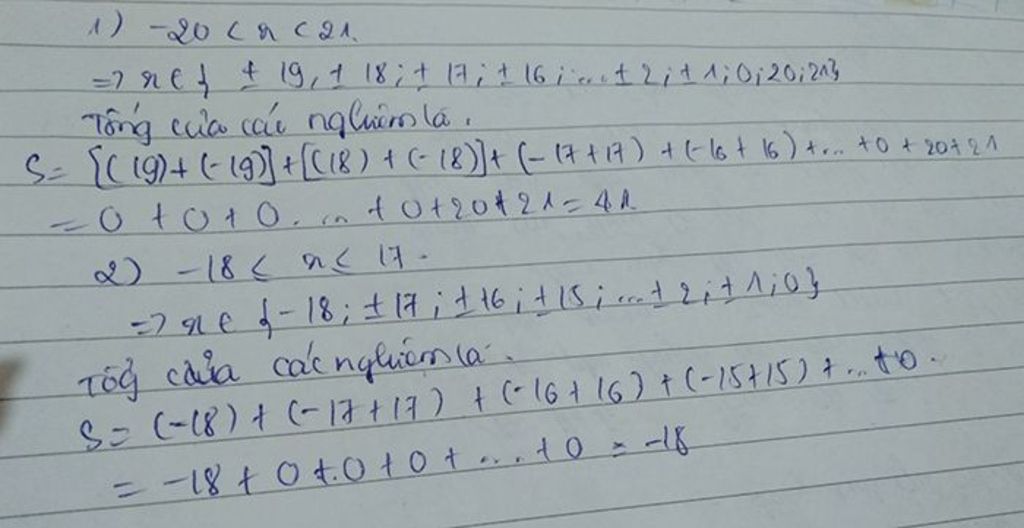 1) -20 < x < 21.
=> x ∈ { ± 19, ± 18; ± 17; ± 16; ... ± 2; ± 1; 0; 20; 21}
Tổng của các nghiệm là.
S = [(19) + (-19)] + [(18) + (-18)] + (-17+17) + (-16 + 16) + ... + 0 + 20 + 21
= 0 + 0 + 0 ... + 0 + 20 + 21 = 41.
2) -18 ≤ x ≤ 17.
=> x ∈ {-18; ±17; ±16; ±15; ... ± 2; ± 1; 0}
Tổg của các nghiệm là.
S = (-18) + (-17+17) + (-16 + 16) + (-15+15) + ... + 0.
= -18 + 0 + 0 + 0 + ... + 0 = -18